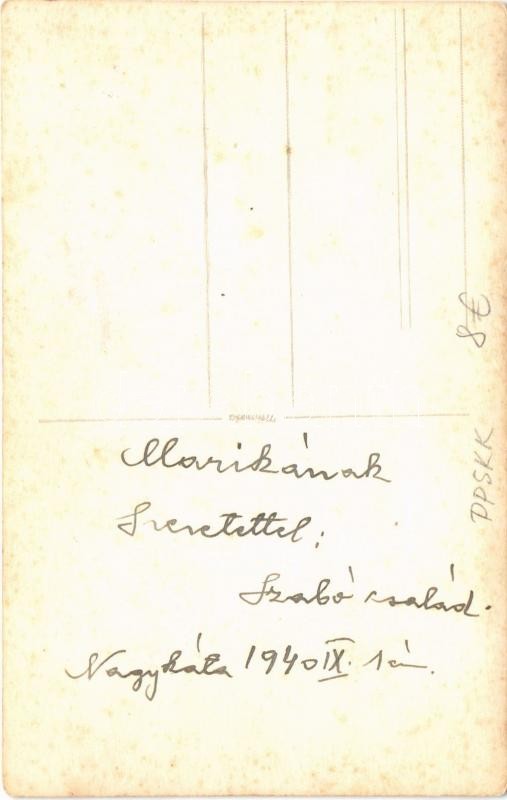 Marikának
Szeretettel:
Szabó család.
Nagykáta 1940 IX. 1én.
8€
PPSKK